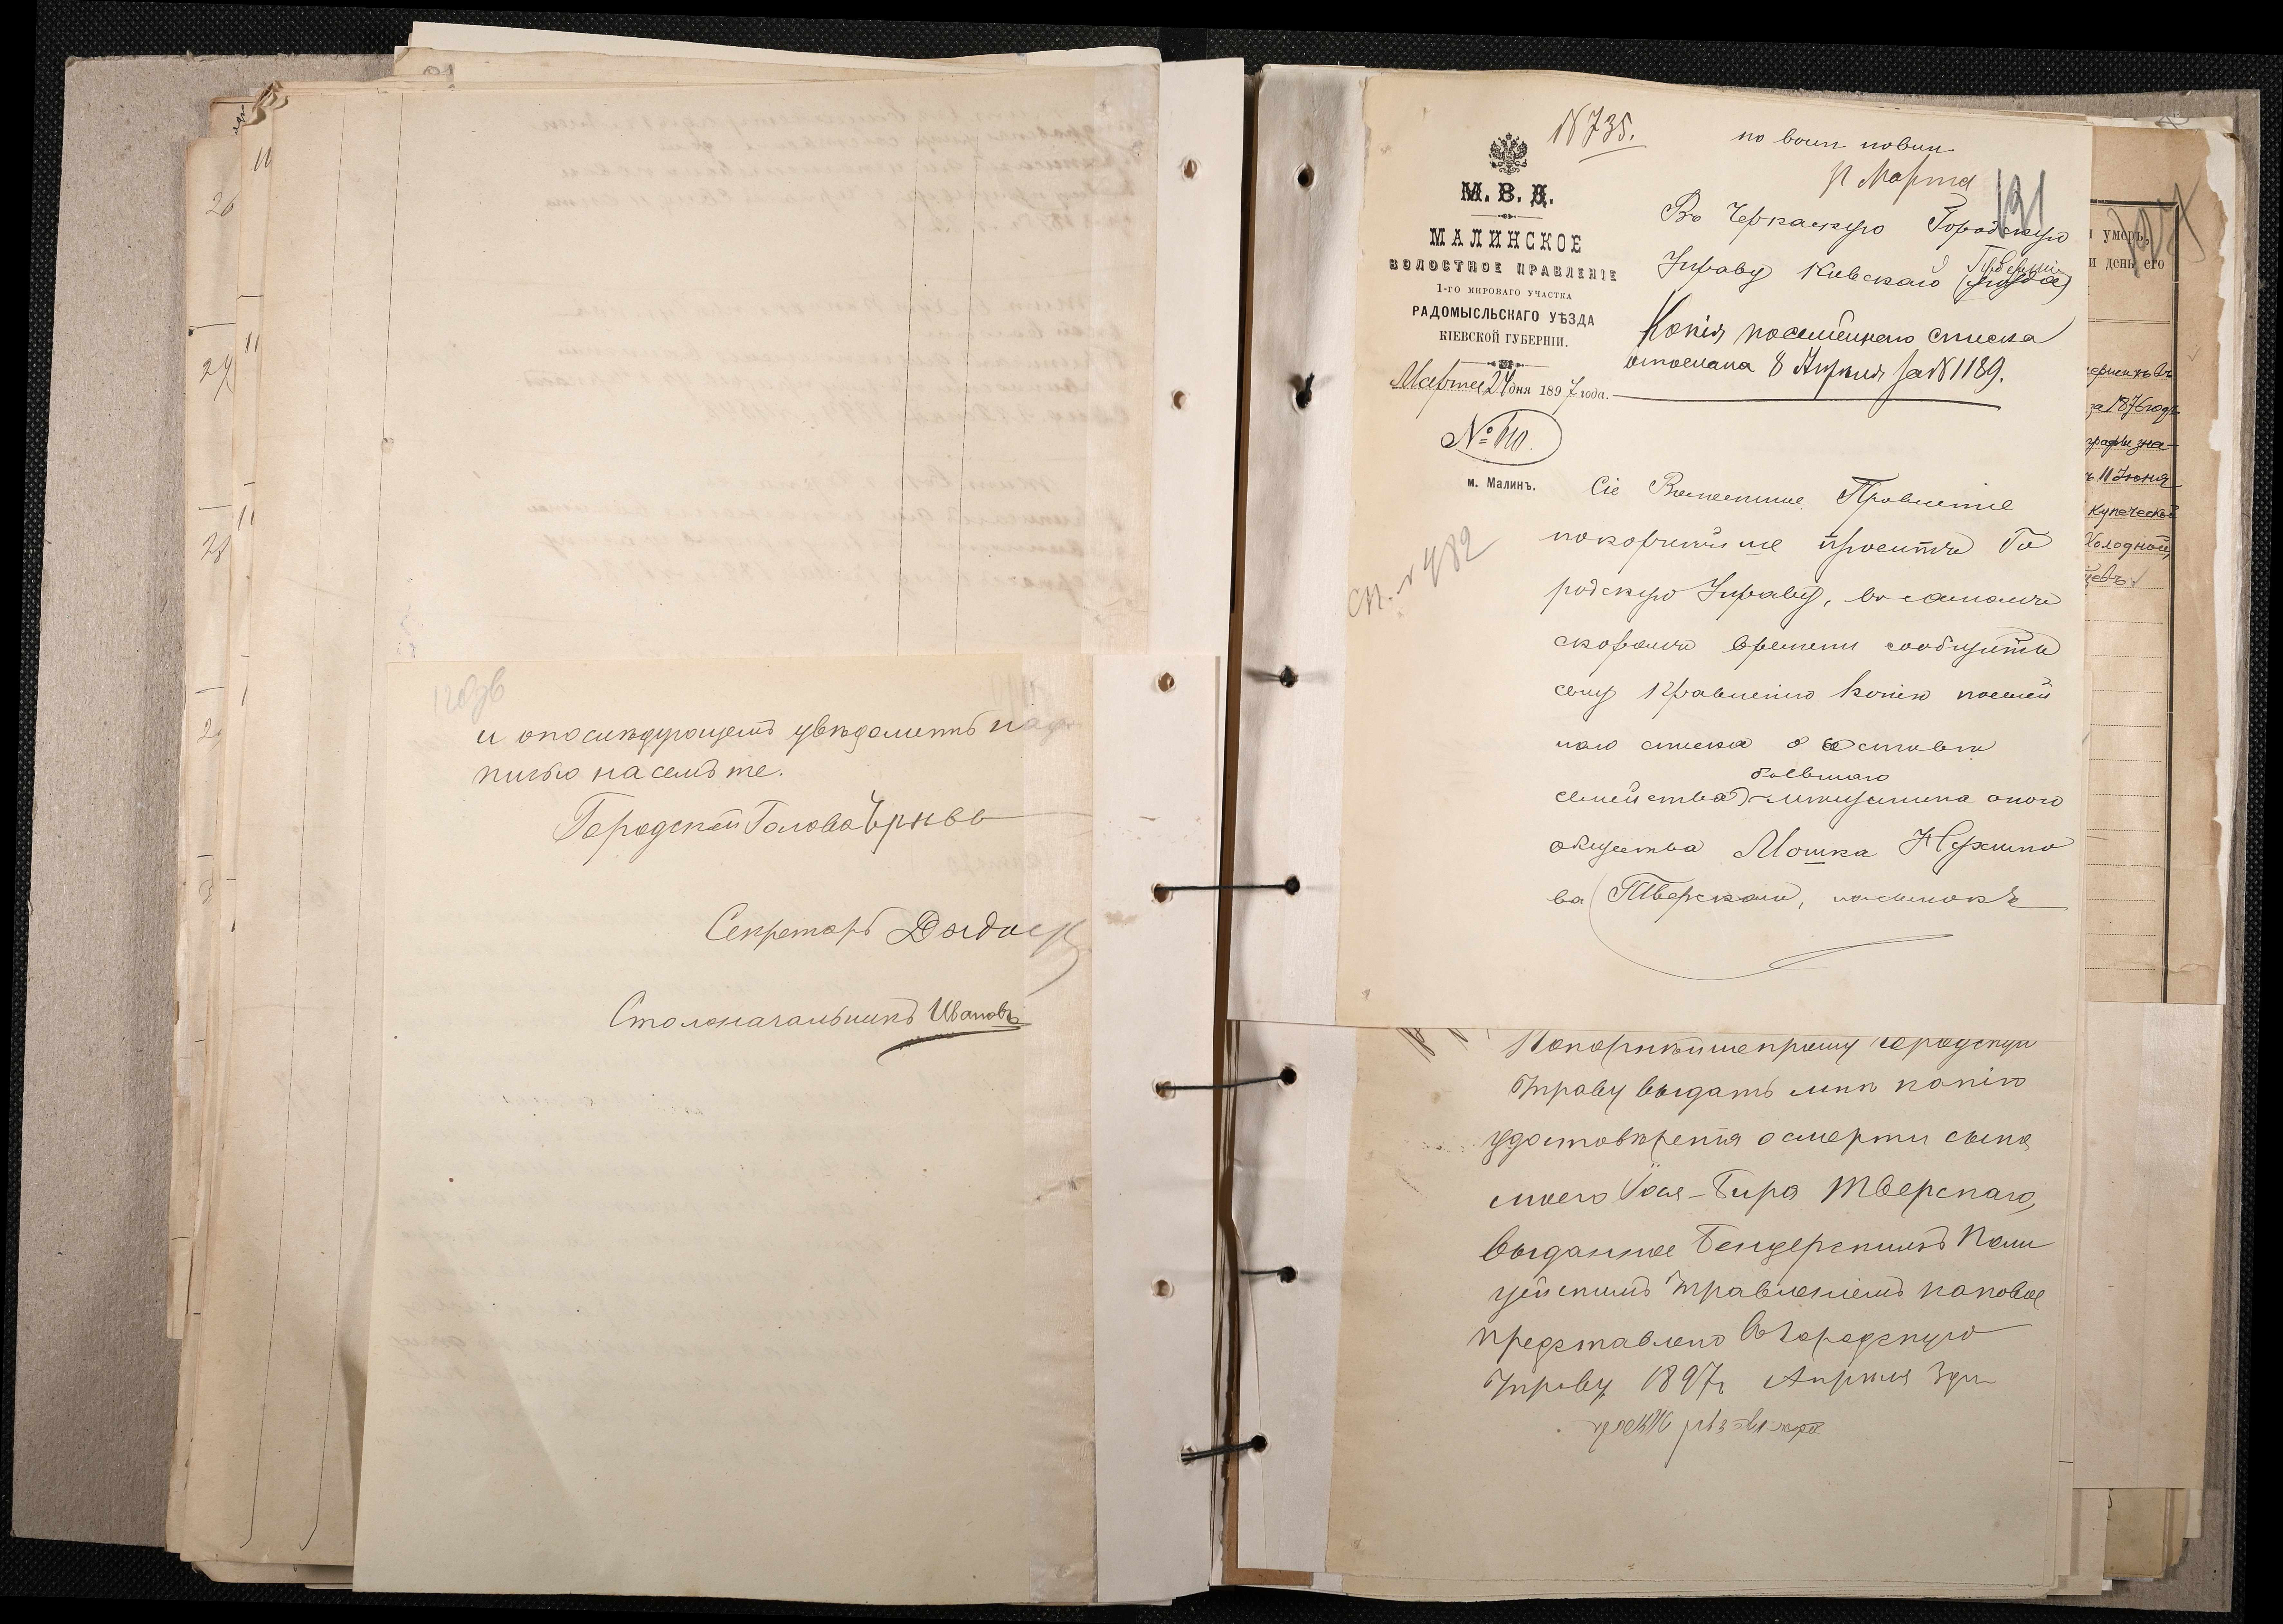 и опослѣдующемъ увѣдомить над
писью на семъ же.
Городской Голова
Секретарь
Столоначальникъ Ивановъ
20
27
28
№ 735.
по воин повин
Марта
191
М. В. Д.
МАЛИНСКОЕ
ВОЛОСТНОЕ ПРАВЛЕНІЕ
1-ГО МИРОВАГО УЧАСТКА
РАДОМЫСЛЬСКАГО УѢЗДА
КІЕВСКОЙ ГУБЕРНІИ.
Марта 24 дня 1897 года.
№ 610.
м. Малинъ.
Въ Черкаскую Городскую
Управу Кіевской Губерніи
Копія посемейнаго списка
отослана 8 Апреля за № 1189.
Сіе Волостное Правленіе
покорнѣйше проситъ Го
родскую Управу, въ самомъ
скоромъ времени сообщить
сему Правленію копію посемей
наго списка о составѣ
семейства бывшаго мѣщанина оного
общества Мошка Нухимо
ва Тверскаго,
сп. № 482
Покорнѣйше прошу городскую
Управу выдать мнѣ копію
удостовѣренія о смерти сына
моего Іося-Бира Тверскаго,
выданное Бендерскимъ Поли
цейскимъ Управленіемъ каковое
представлено въ городскую
Управу 1897 г. Апреля 3 дня
умеръ,
и день его
за 1876 годъ
графы зна-
11 Іюня
купеческой
Холодной,